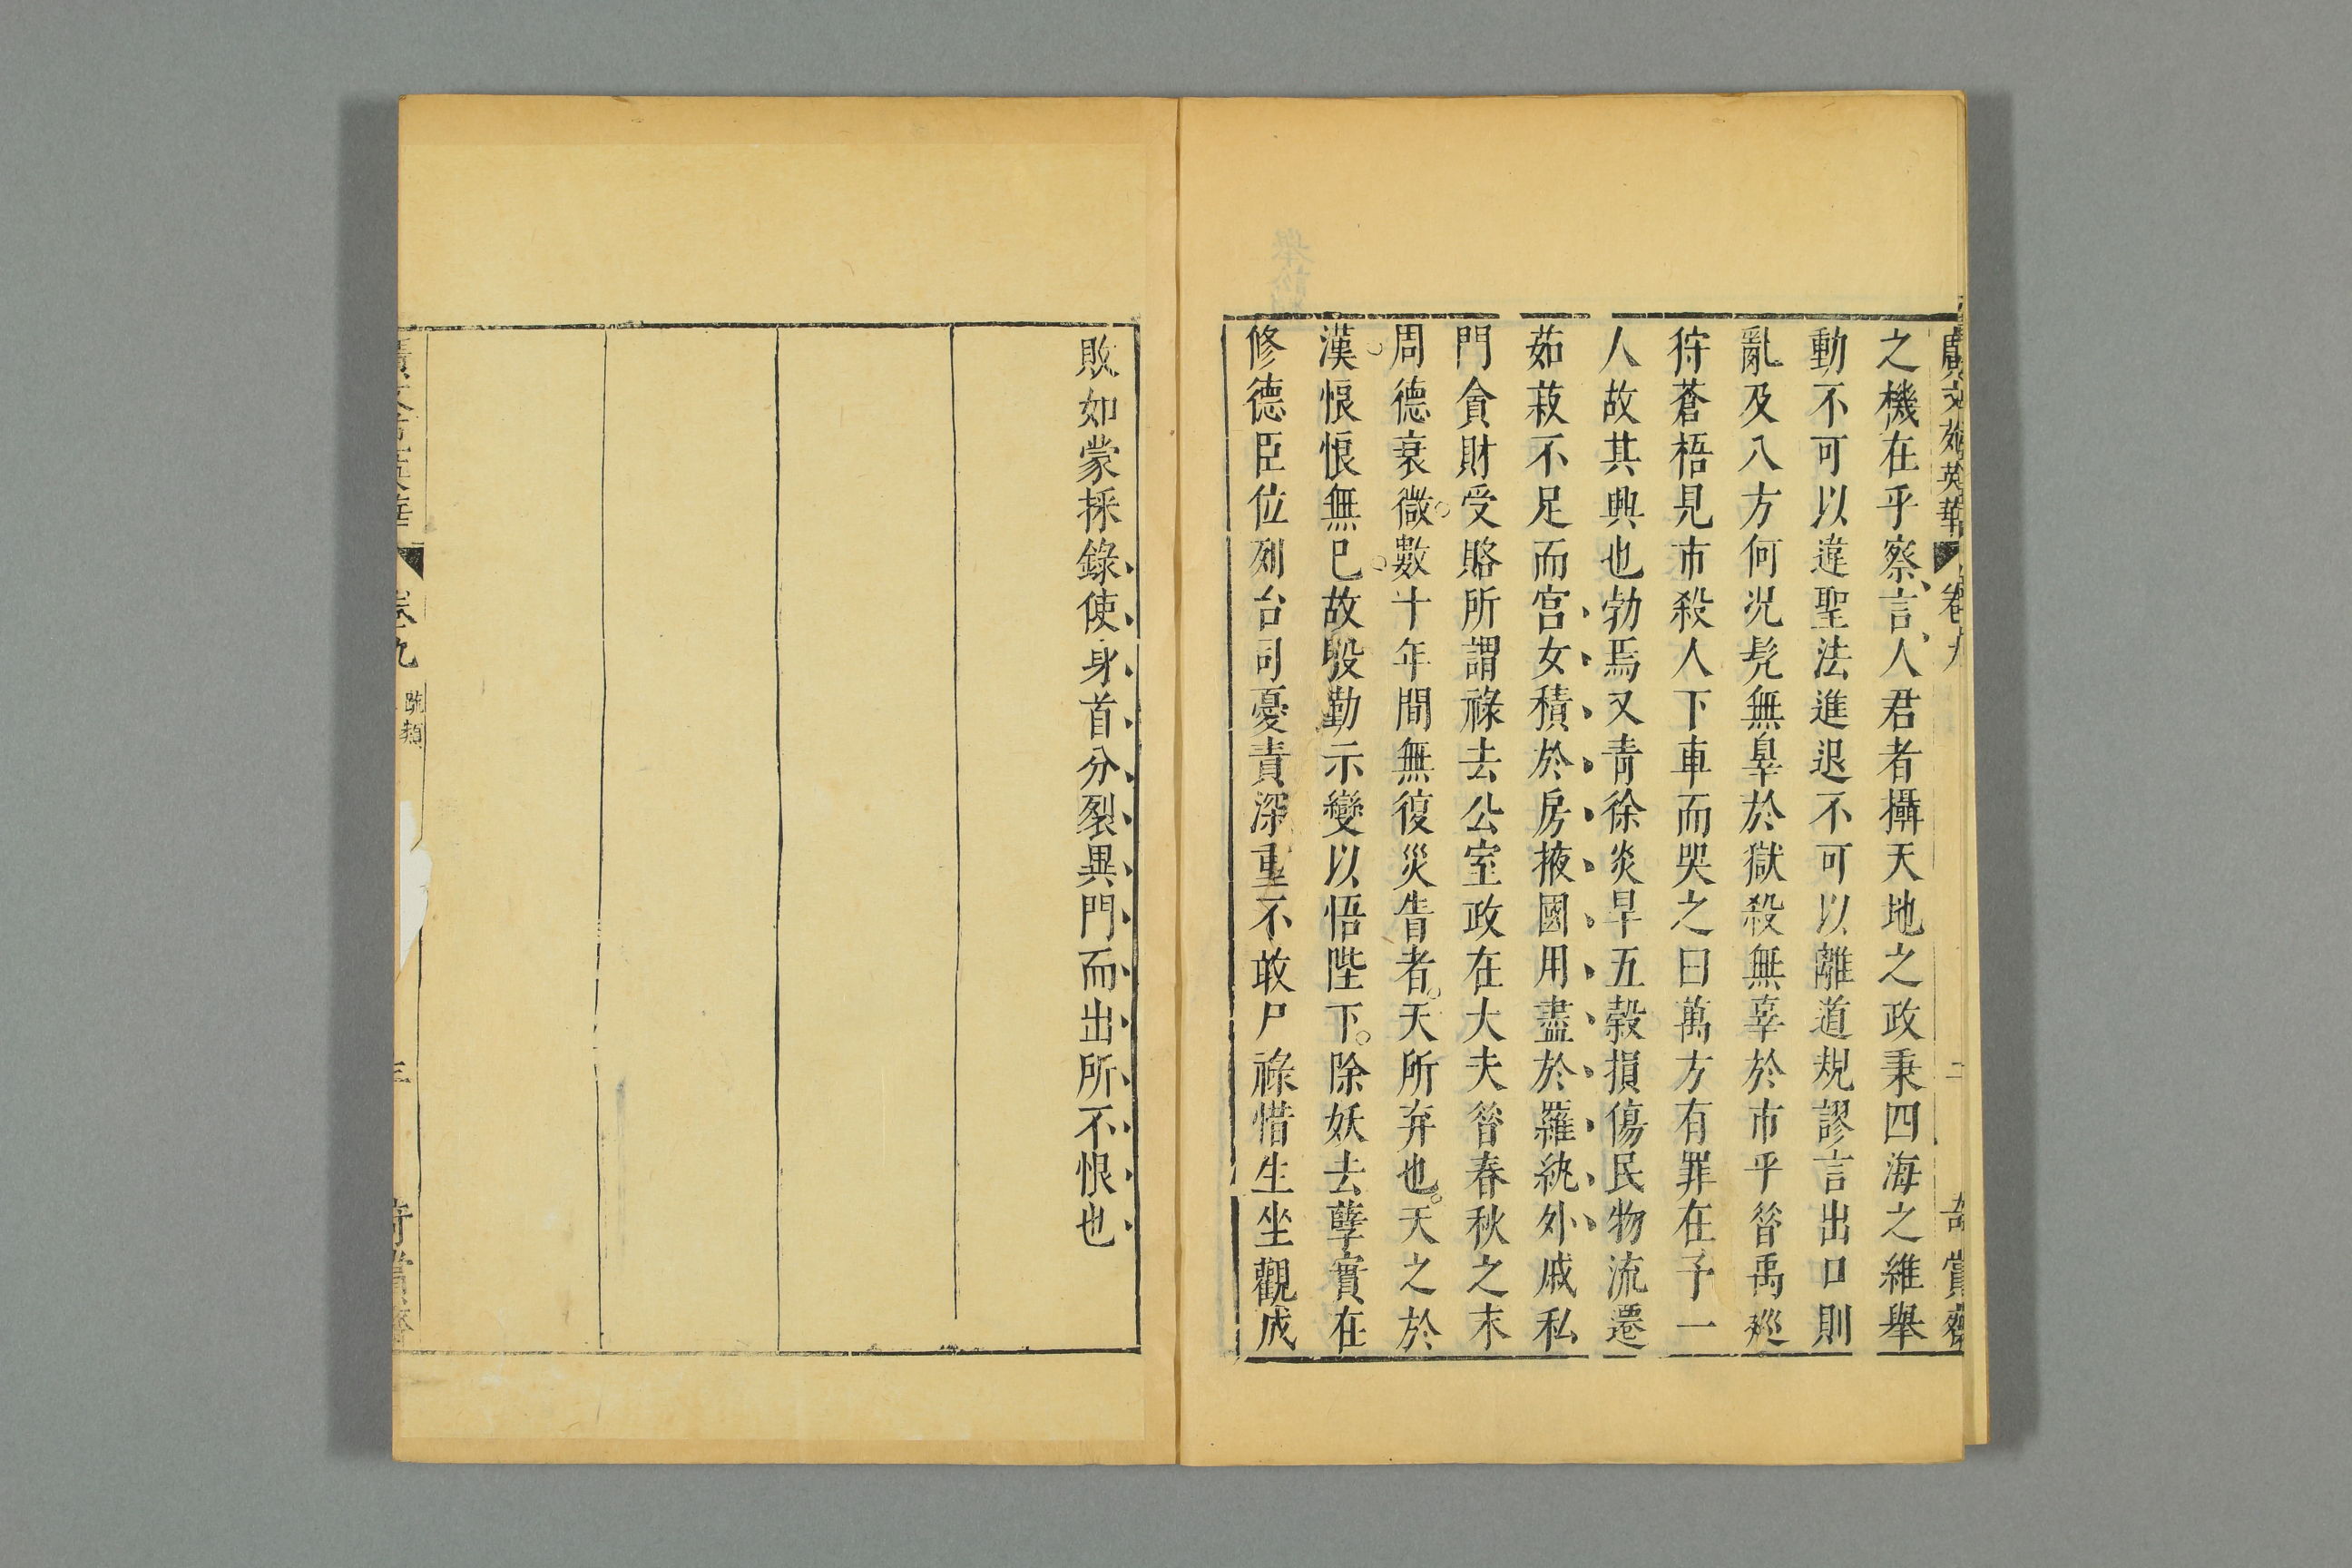 廣文苑英華 卷九 二 奇賞齋
之機在乎察言人君者攝天地之政秉四海之維舉
動不可以違聖法進退不可以離道規謬言出口則
亂及八方何況髡無辠於獄殺無辜於市乎昝禹廵
狩蒼梧見市殺人下車而哭之曰萬方有罪在予一
人故其興也勃焉又青徐炎旱五榖損傷民物流遷
茹菽不足而宫女積於房掖國用盡於羅紈外戚私
門貪財受賂所謂祿去公室政在大夫昝春秋之末
周德衰微數十年間無復災眚者天所弃也天之於
漢悢悢無已故殷勤示變以悟陛下除妖去孽實在
修德臣位列台司憂責深重不敢尸祿惜生坐觀成
敗如蒙採錄使身首分裂異門而出所不恨也
廣文苑英華 卷九 疏類 三 奇賞齋